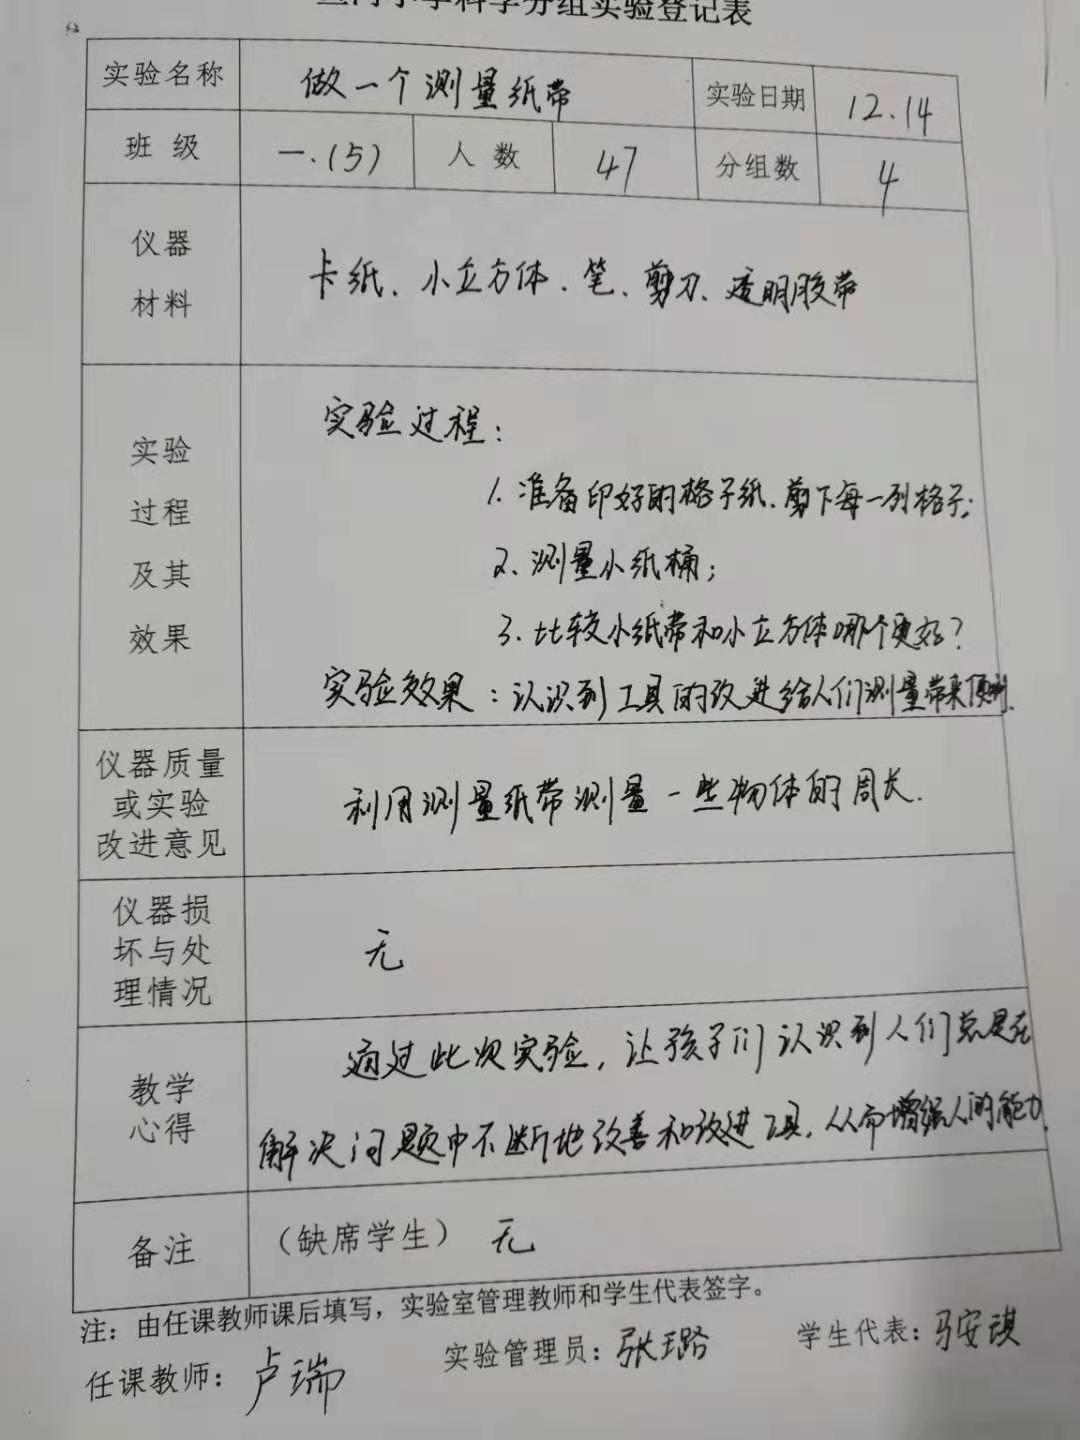 小学科学分组实验登记表
实验名称 做一个测量纸带 实验日期 12.14
班级 一.(5) 人数 47 分组数 4
仪器
材料
卡纸、小立方体、笔、剪刀、透明胶带
实验
过程
及其
效果
实验过程:
1. 准备印好的格子纸、剪下每一列格子;
2、测量小纸桶;
3、比较小纸带和小立方体哪个更好?
实验效果:认识到工具的改进给人们测量带来便利.
仪器质量
或实验
改进意见
利用测量纸带测量一些物体的周长.
仪器损
坏与处
理情况
无
教学
心得
通过此次实验,让孩子们认识到人们总是在
解决问题中不断地改善和改进工具,从而增强人的能力.
备注 (缺席学生) 无
注:由任课教师课后填写,实验室管理教师和学生代表签字。
任课教师:卢瑞 实验管理员:张璐 学生代表:马安琪